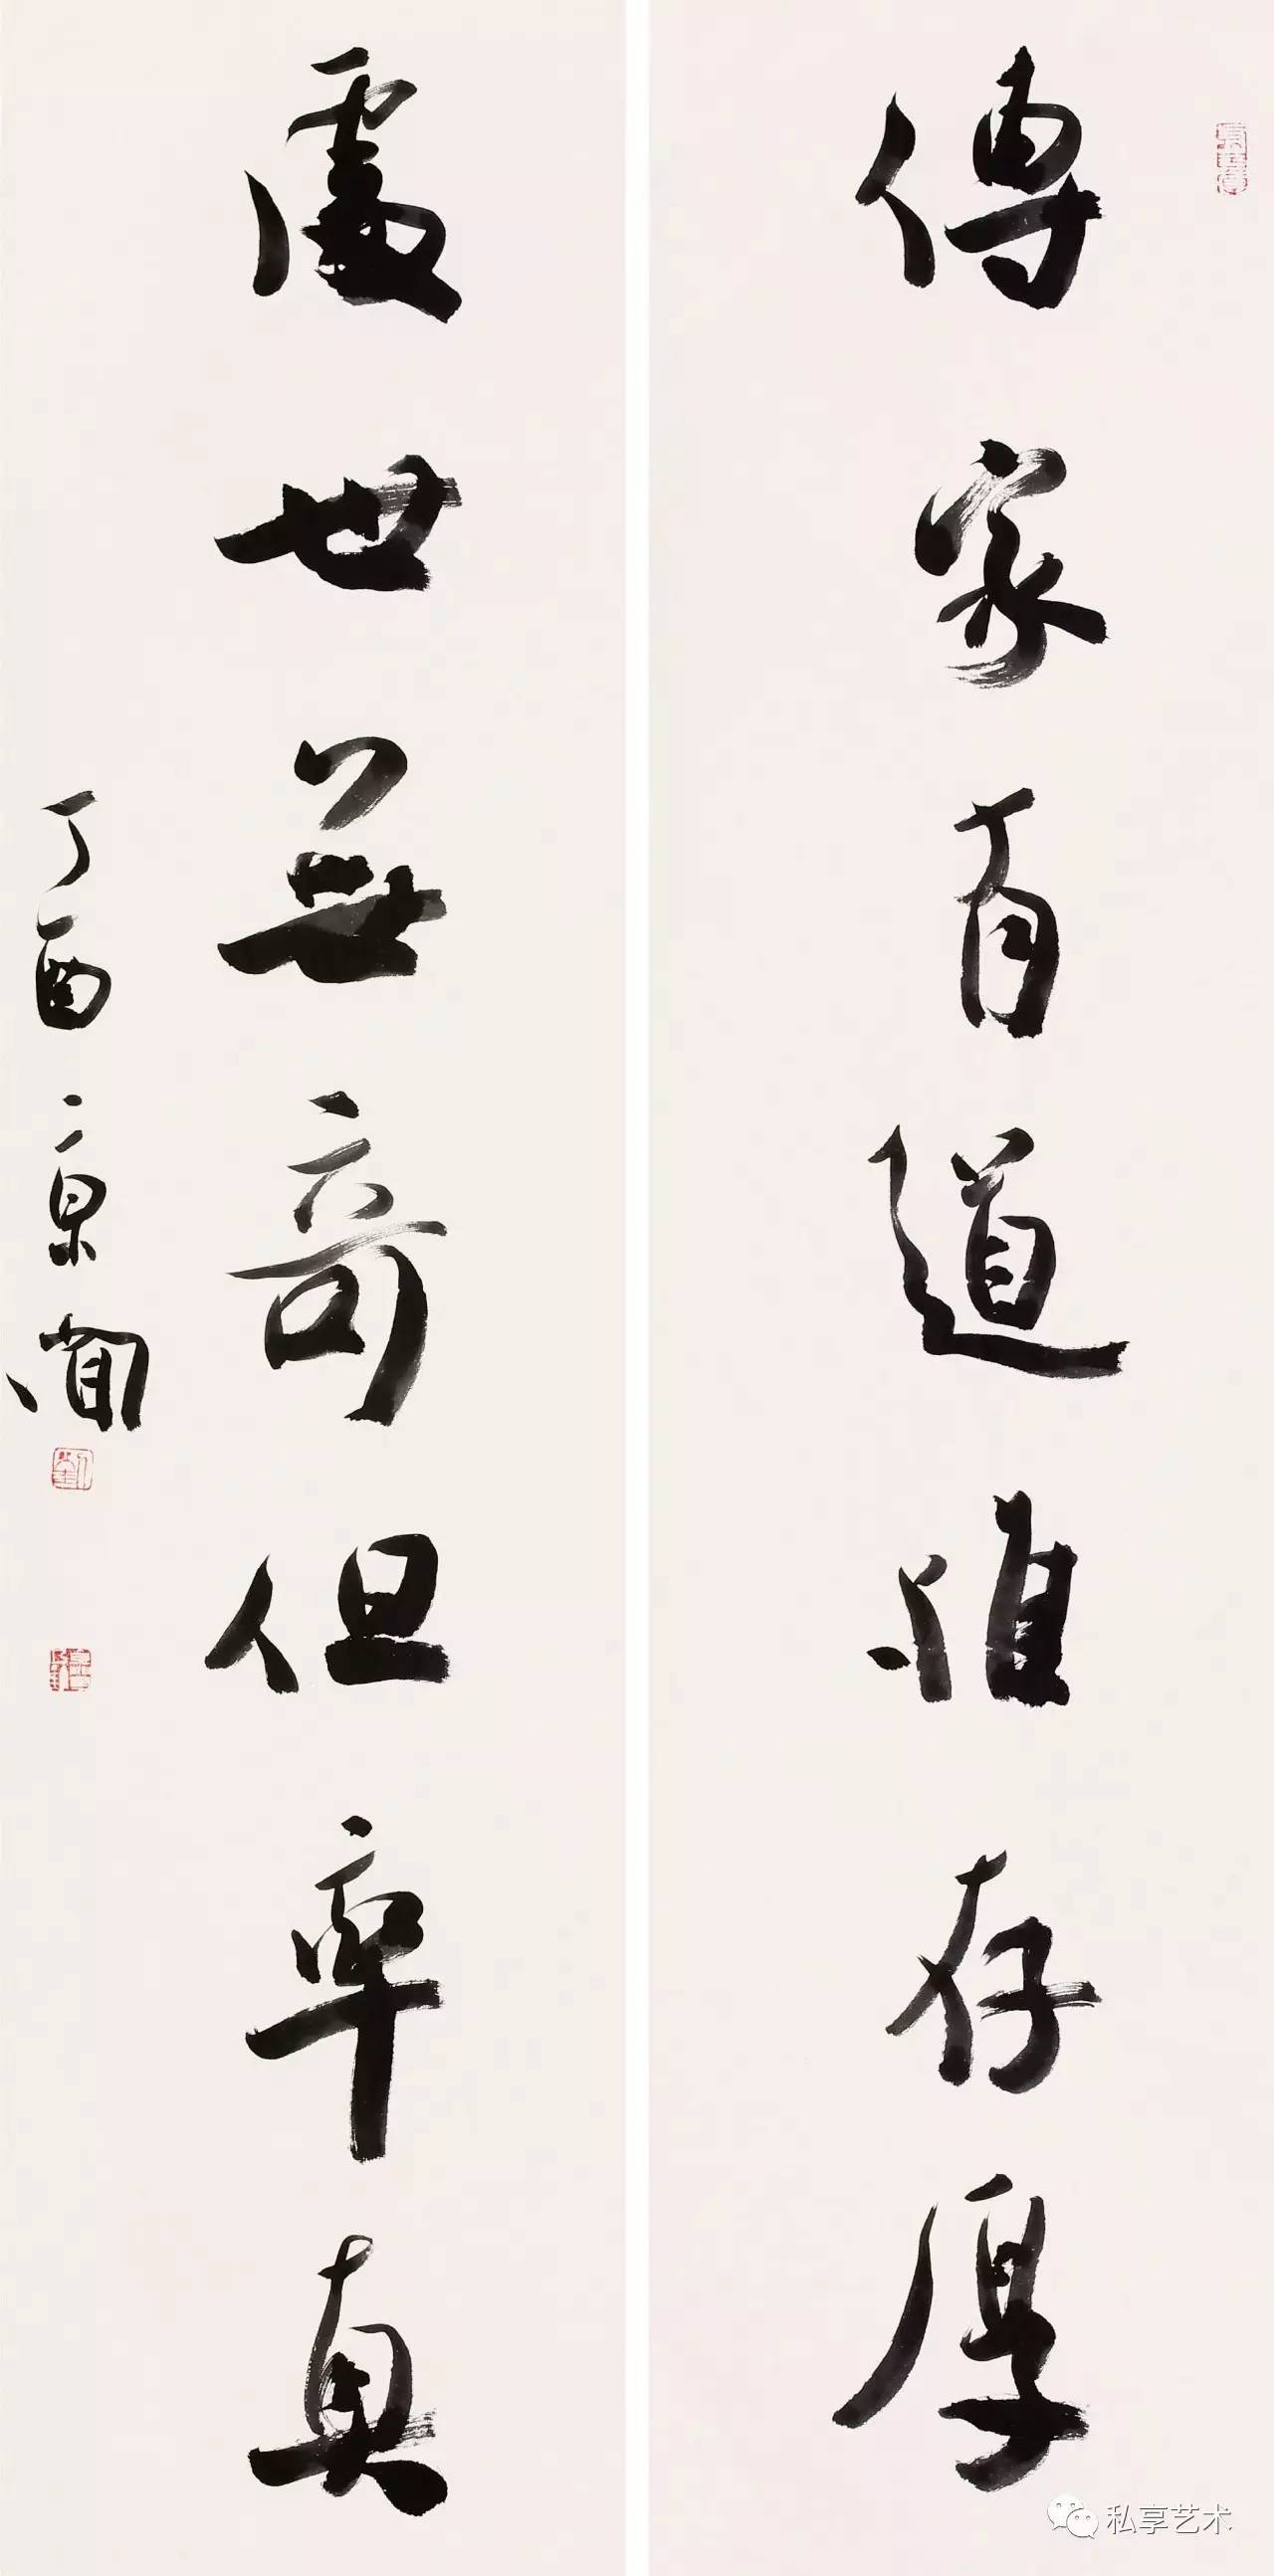 傳家有道惟存厚
處世無奇但率真
丁酉 景閣
私享艺术